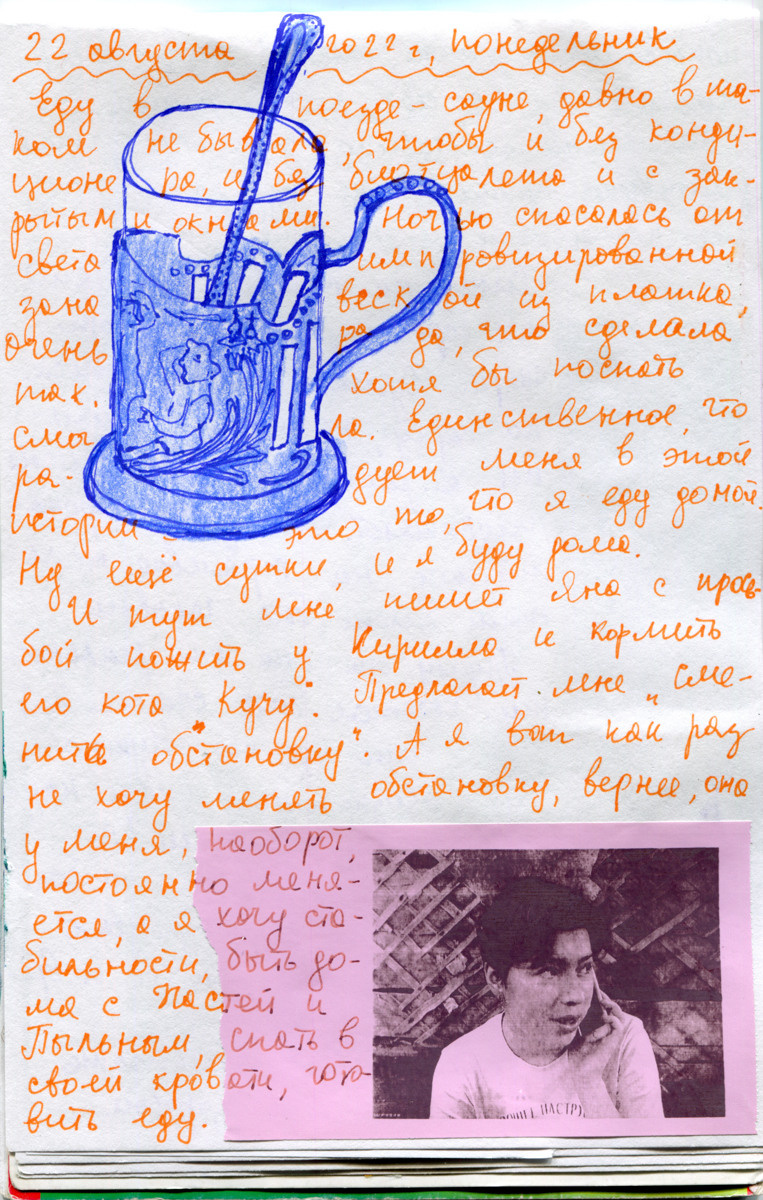 22 августа 2022 г, понедельник
Еду в поезде-сауне, давно в та-
ком не бывала, чтобы и без конди-
ционера, и без биотуалета и с зак-
рытыми окнами. Ночью спасалась от
света импровизированной
занавеской из платка,
очень рада, что сделала
так. хотя бы поспать
смогла. Единственное, что
ра-дует меня в этой
истории - это то, что я еду домой.
Ну ещё сутки, и я буду дома.
И тут мне пишет Яна с прось-
бой пожить у Кирилла и кормить
его кота "Кучу". Предлагает мне „сме-
нить обстановку". А я вот как раз
не хочу менять обстановку, вернее, она
у меня, наоборот,
постоянно меня-
ется, а я хочу ста-
бильности, быть до-
ма с Настей и
Пыльным, спать в
своей кровати, гото-
вить еду.
НАСТР